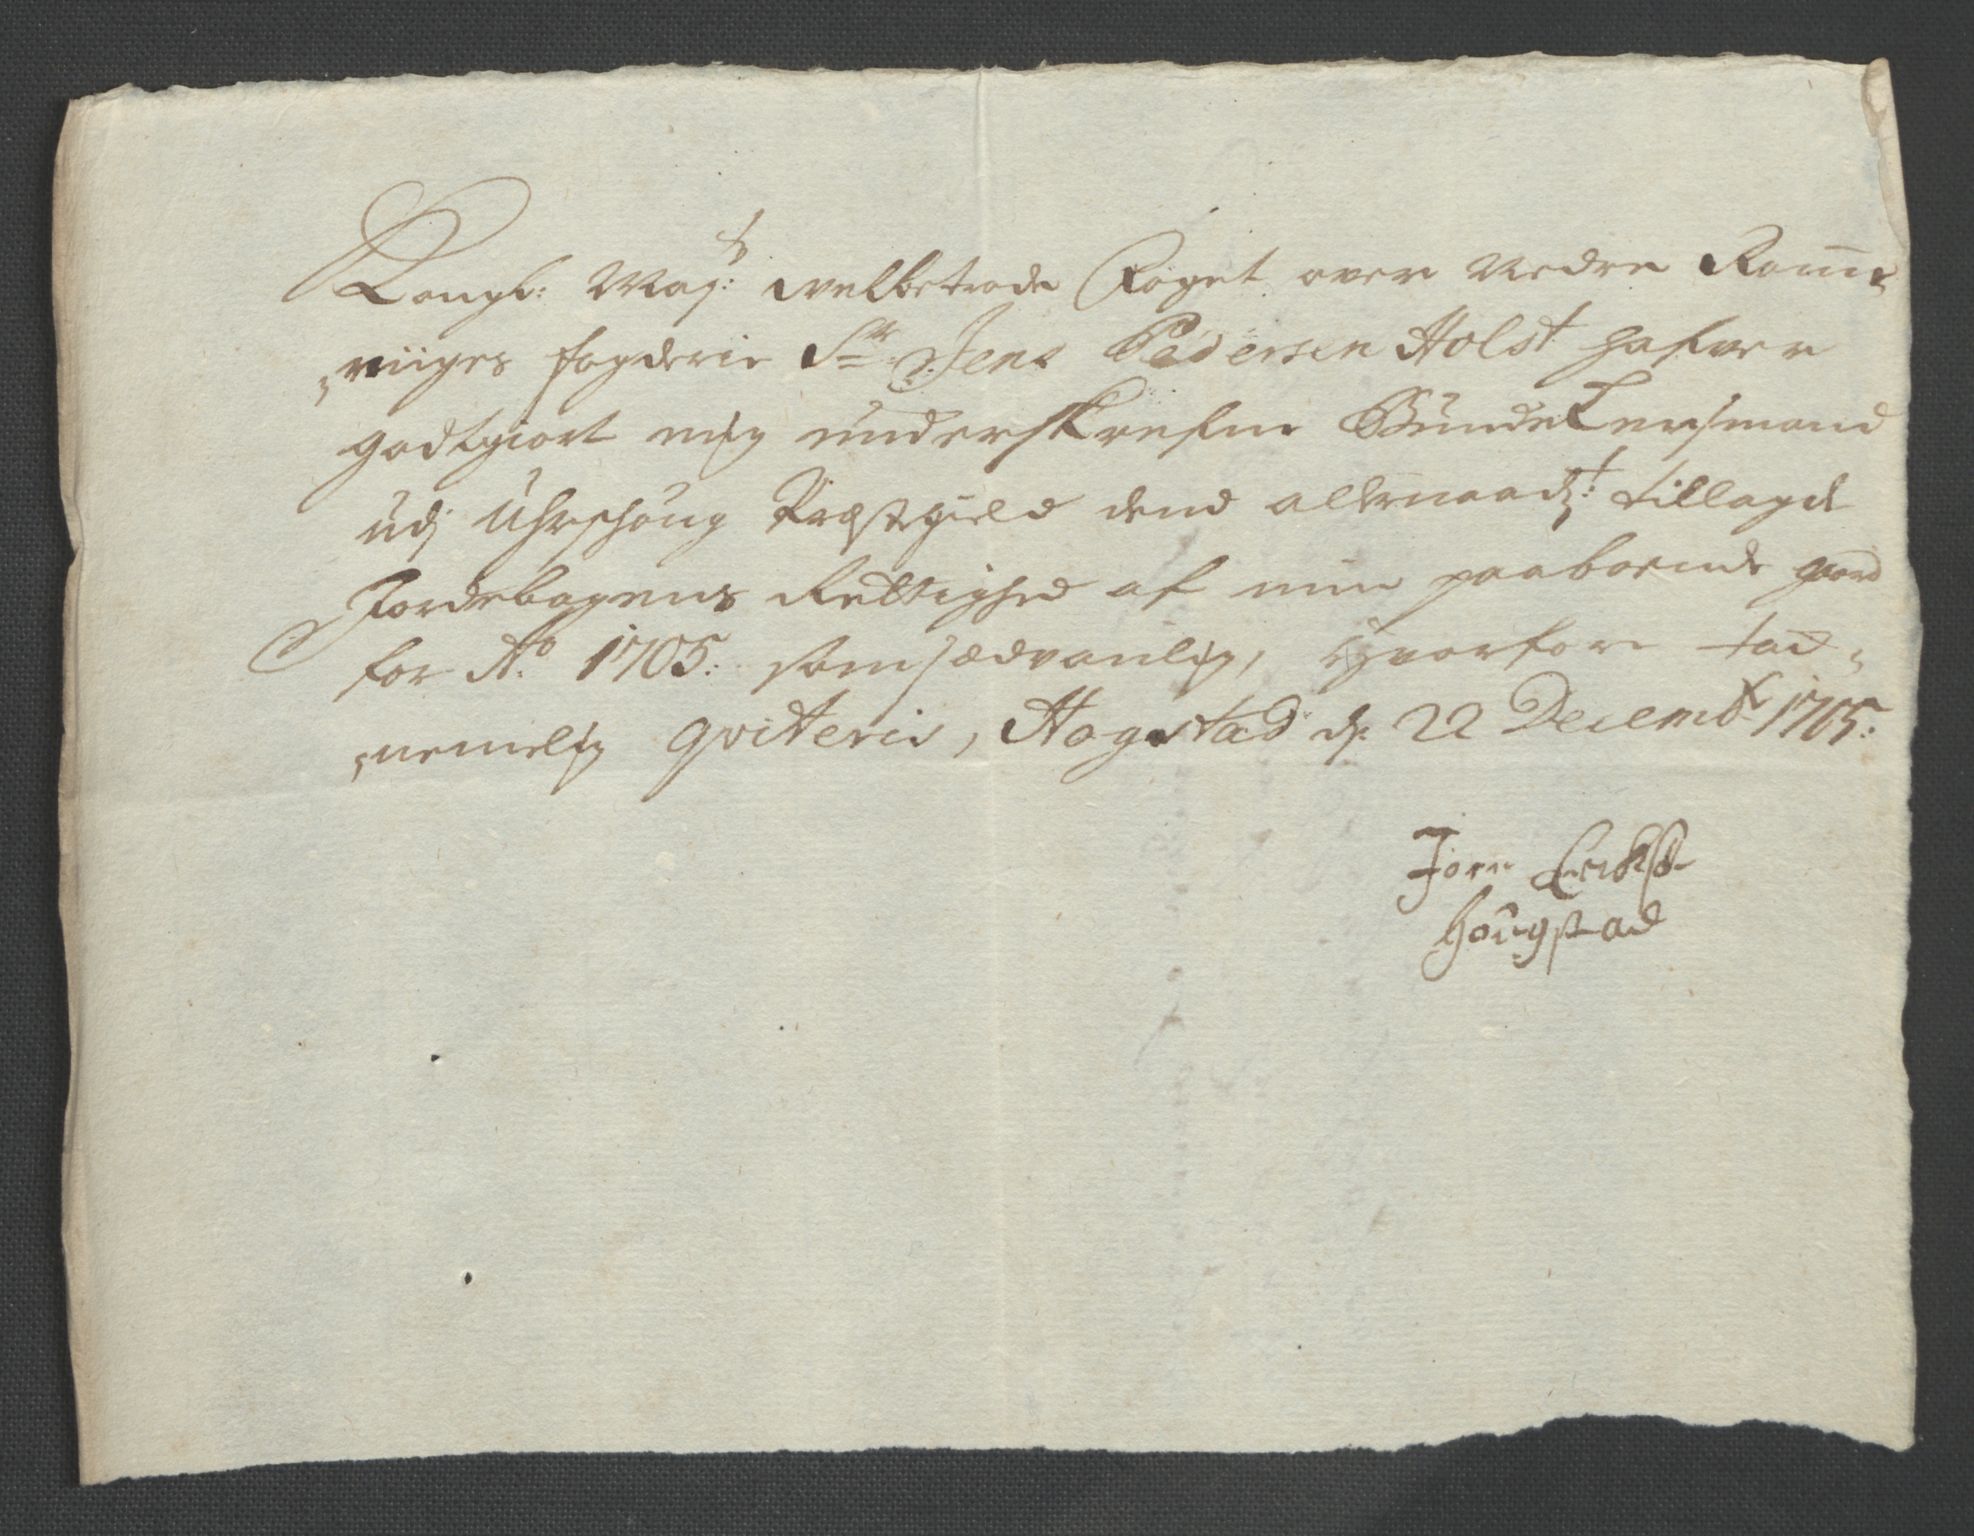 Kongl: Mayt: welbetrode Foget over Nedre Romme
„riiges fogderie Sr. Jens Pedersen Holst hafver
godtgiort mig underskrefne Bunde Lensmand
udj Uhrschoug Præstegield dend allernaadt: tillagde
Jordebogens Rettighed af min paaboende gaard
for Ao. 1705: som sædvanlig, hvorfore tac„
„nemelig qviteris, Hogstad d. 22 Decembr 1705:
Joen Erichs
Hougstad